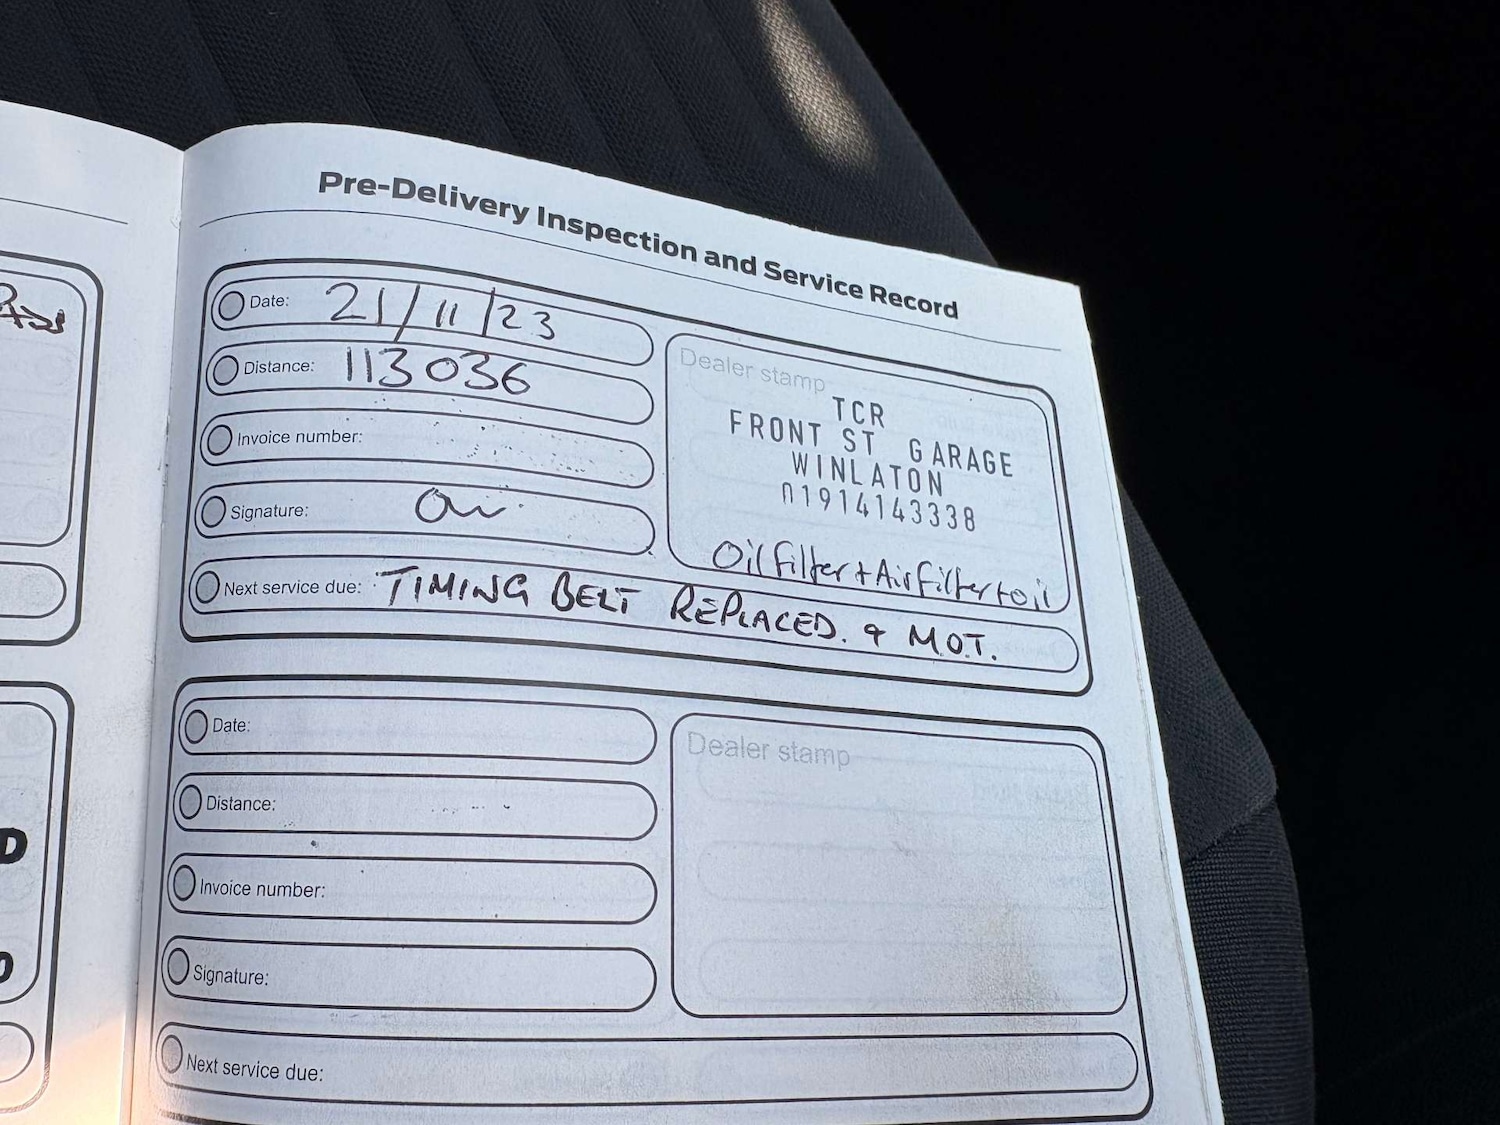 Pre-Delivery Inspection and Service Record
Date: 21/11/23
Distance: 113036
Invoice number:
Signature:
Dealer stamp
TCR
FRONT ST GARAGE
WINLATON
01914143338
Oil filter + Air filter + oil
Next service due: TIMING BELT REPLACED. & M.O.T.
Date:
Distance:
Invoice number:
Signature:
Dealer stamp
Next service due:
D